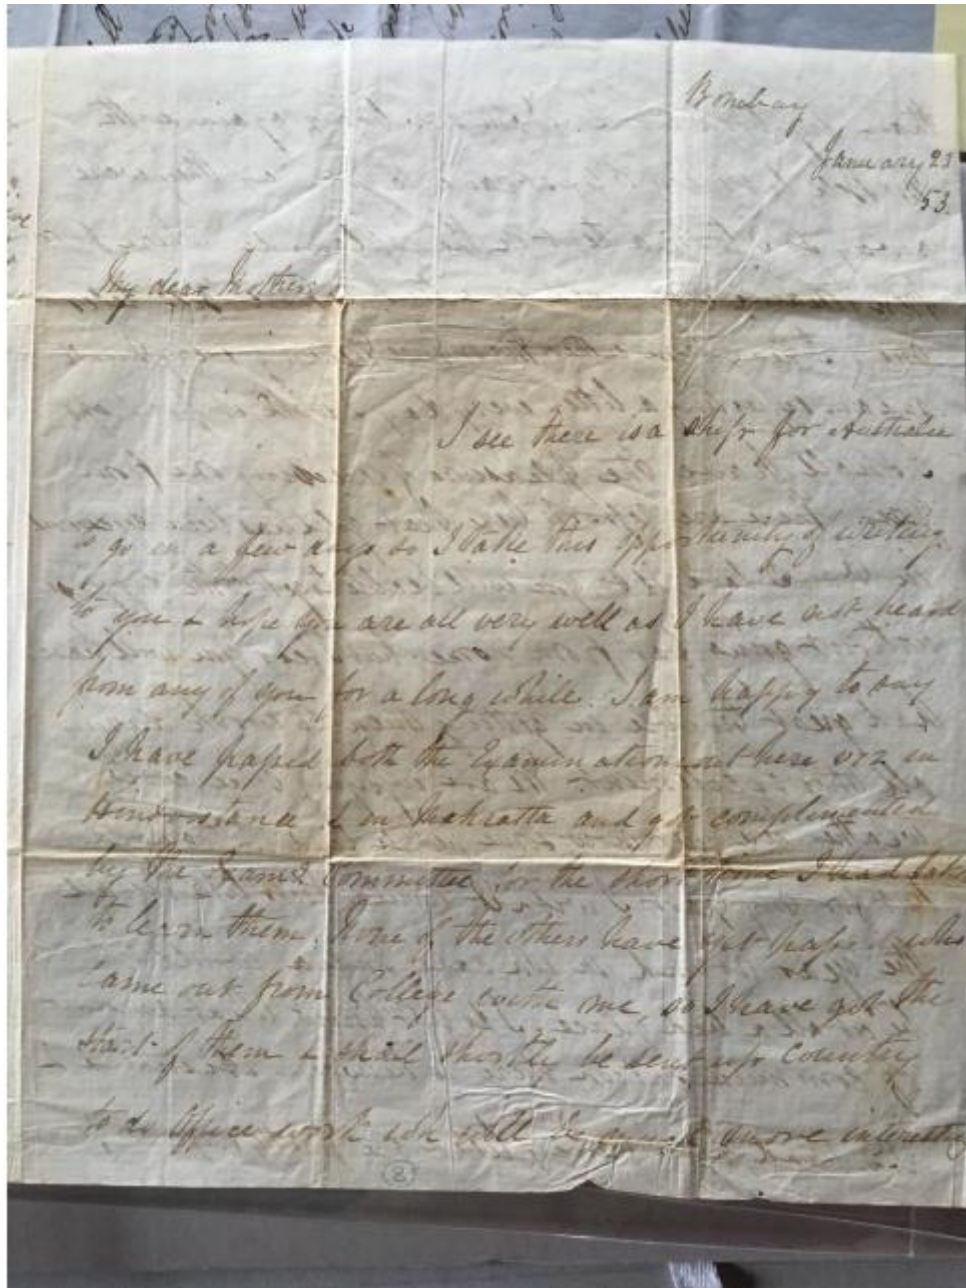 Bombay
January 23
53.
My dear Mother
I see there is a ship for Australia
to go in a few days so I take this opportunity of writing
to you & hope you are all very well as I have not heard
from any of you for a long while. I am happy to say
I have passed both the Examinations out here viz in
Hindostanee & in Mahratta and got complimented
by the Committee for the short time I had taken
to learn them. None of the others have yet pass who
came out from College with me so I have got the
start of them & shall shortly be sent up country
to do Office work wh will be much more interesting
8